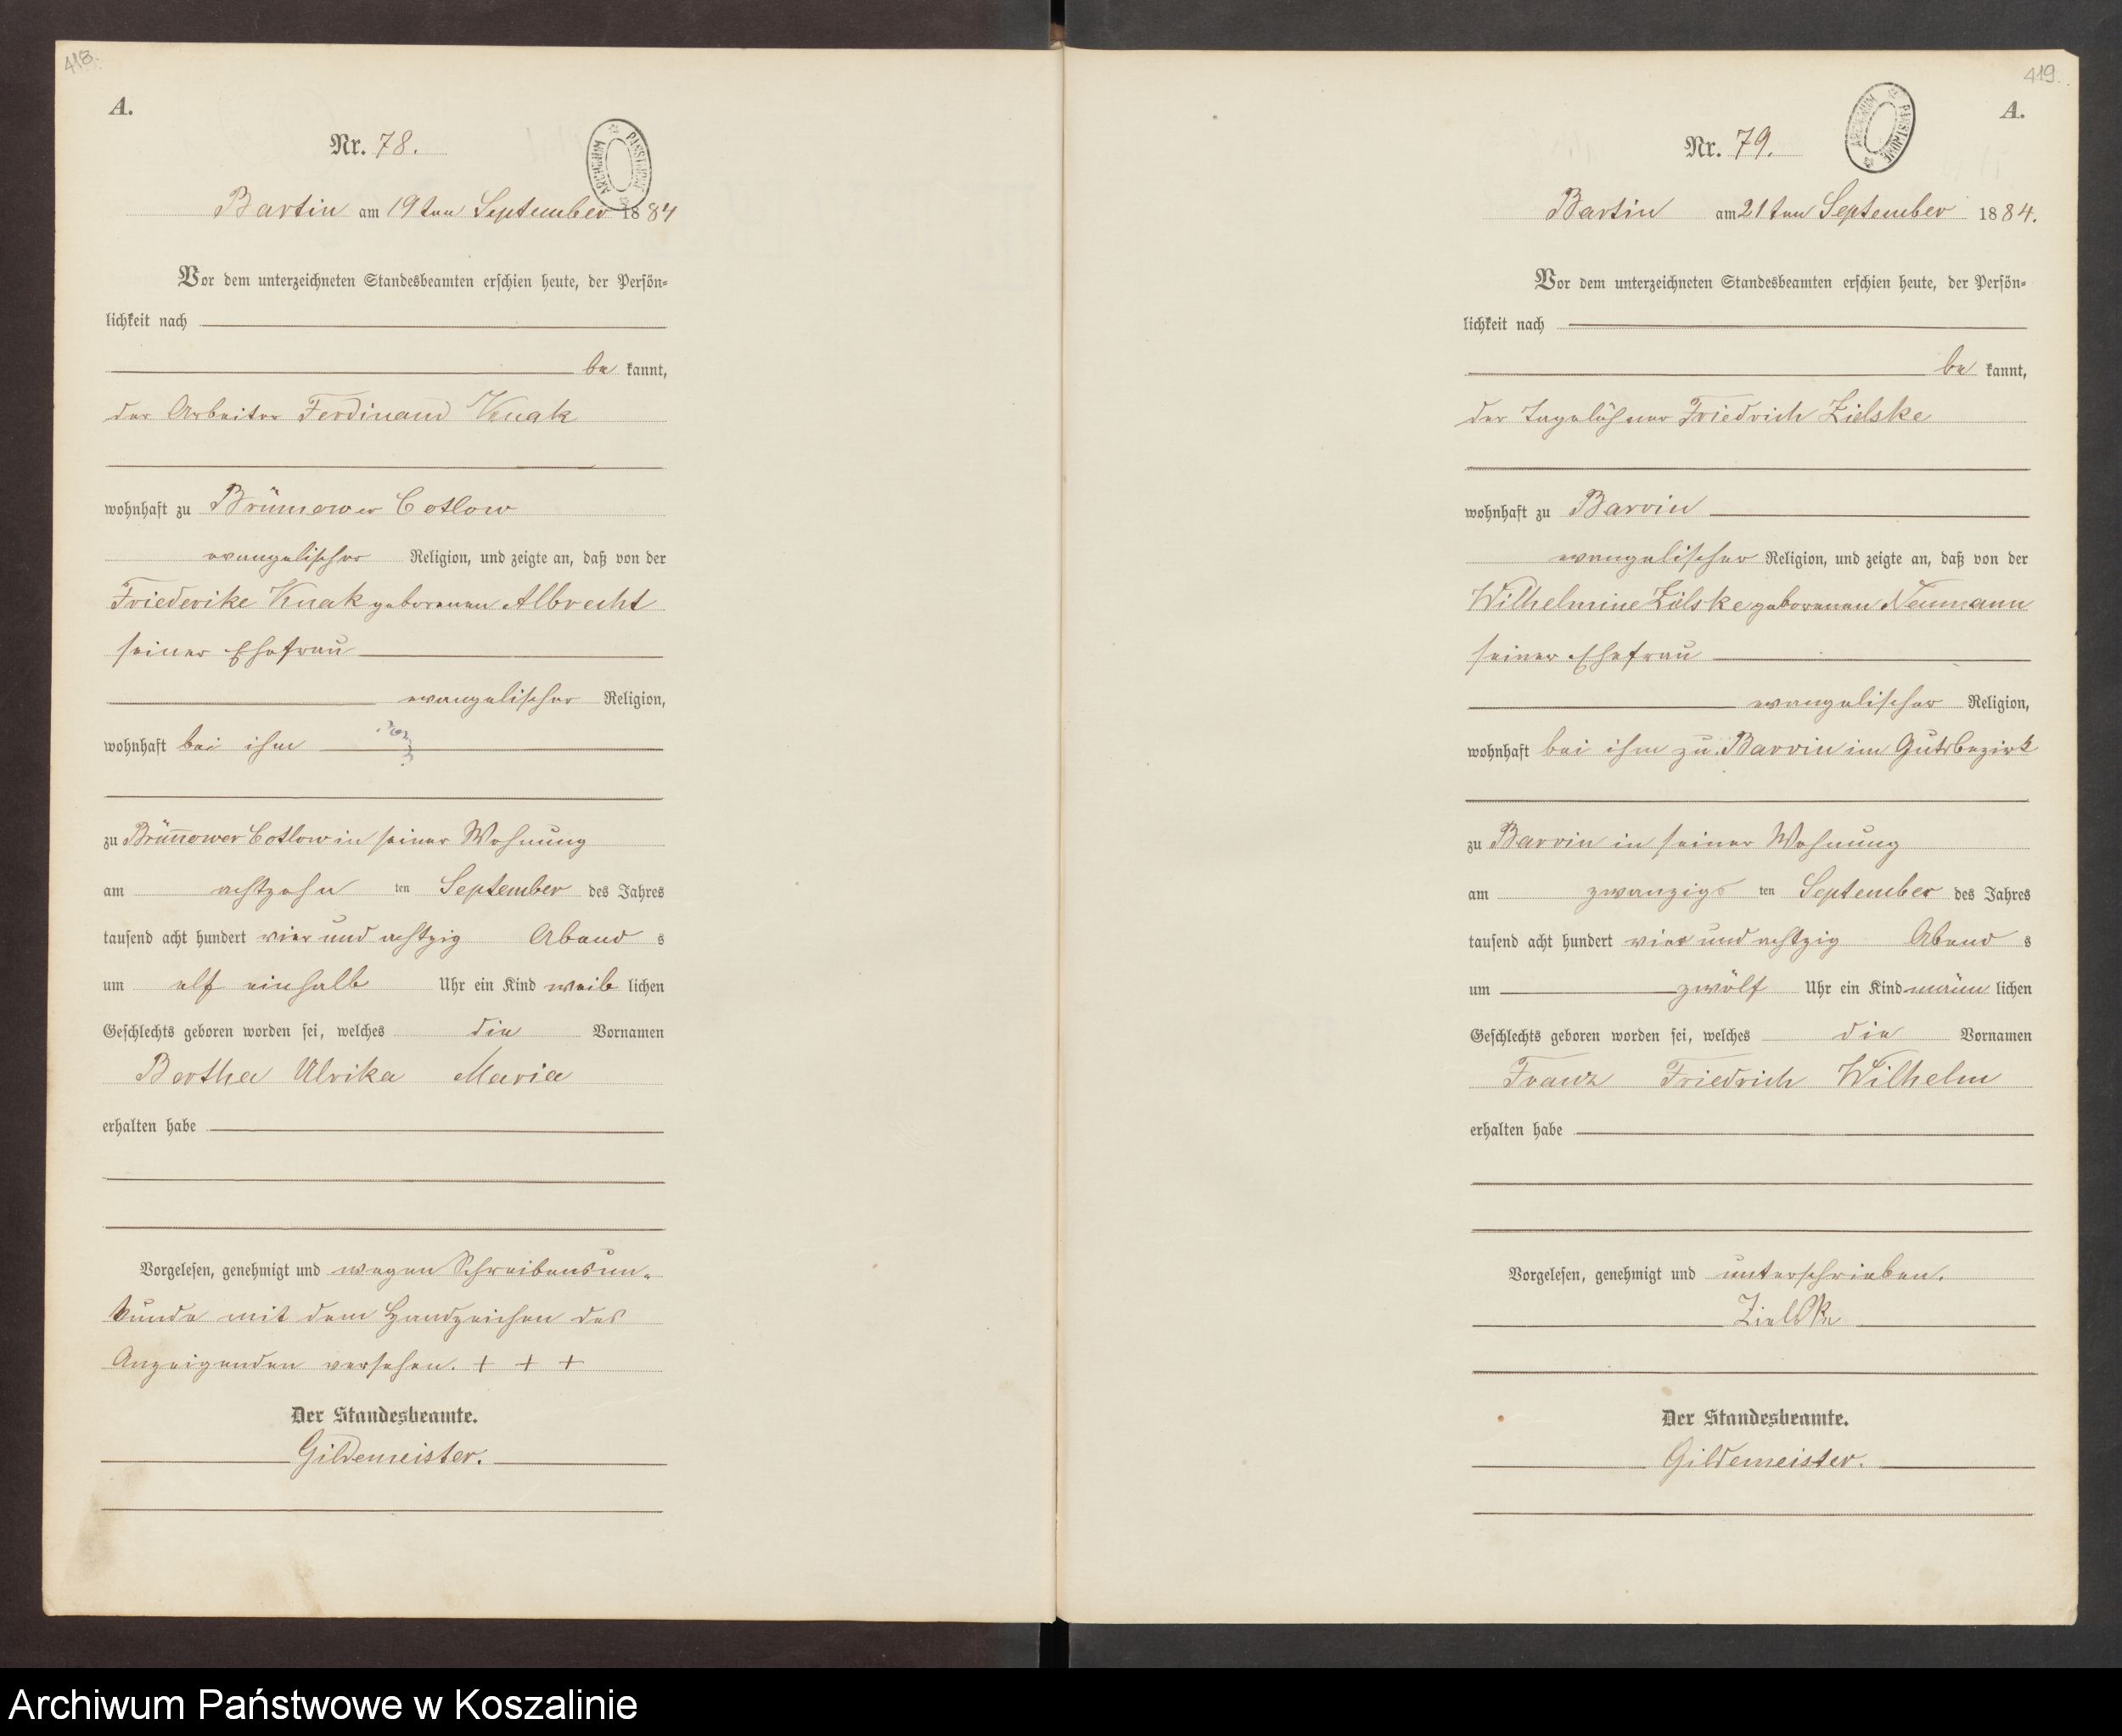 418.
A.
Nr. 78.
ARCHIWUM PAŃSTWOWE
Bartin am 19ten September 1884
Vor dem unterzeichneten Standesbeamten erschien heute, der Persön-
lichkeit nach
be kannt,
der Arbeiter Ferdinand Knak
wohnhaft zu Brünnower Cotlow
evangelischer Religion, und zeigte an, daß von der
Friederike Knak geborenen Albrecht
seiner Ehefrau
evangelischer Religion,
wohnhaft bei ihm
zu Brünnower Cotlow in seiner Wohnung
am achtzehn ten September des Jahres
tausend acht hundert vier und achtzig Abend s
um elf einhalb Uhr ein Kind weib lichen
Geschlechts geboren worden sei, welches die Vornamen
Bertha Ulrika Maria
erhalten habe
Vorgelesen, genehmigt und wegen Schreibensun-
kunde mit dem Handzeichen des
Anzeigenden versehen. + + +
Der Standesbeamte.
Gildemeister.
419.
A.
Nr. 79.
ARCHIWUM PAŃSTWOWE
Bartin am 21ten September 1884.
Vor dem unterzeichneten Standesbeamten erschien heute, der Persön-
lichkeit nach
be kannt,
der Tagelöhner Friedrich Zielske
wohnhaft zu Barvin
evangelischer Religion, und zeigte an, daß von der
Wilhelmine Zielske geborenen Neumann
seiner Ehefrau
evangelischer Religion,
wohnhaft bei ihm zu Barvin im Gutsbezirk
zu Barvin in seiner Wohnung
am zwanzigs ten September des Jahres
tausend acht hundert vier und achtzig Abend s
um zwölf Uhr ein Kind männ lichen
Geschlechts geboren worden sei, welches die Vornamen
Franz Friedrich Wilhelm
erhalten habe
Vorgelesen, genehmigt und unterschrieben.
Zielske
Der Standesbeamte.
Gildemeister.
Archiwum Państwowe w Koszalinie